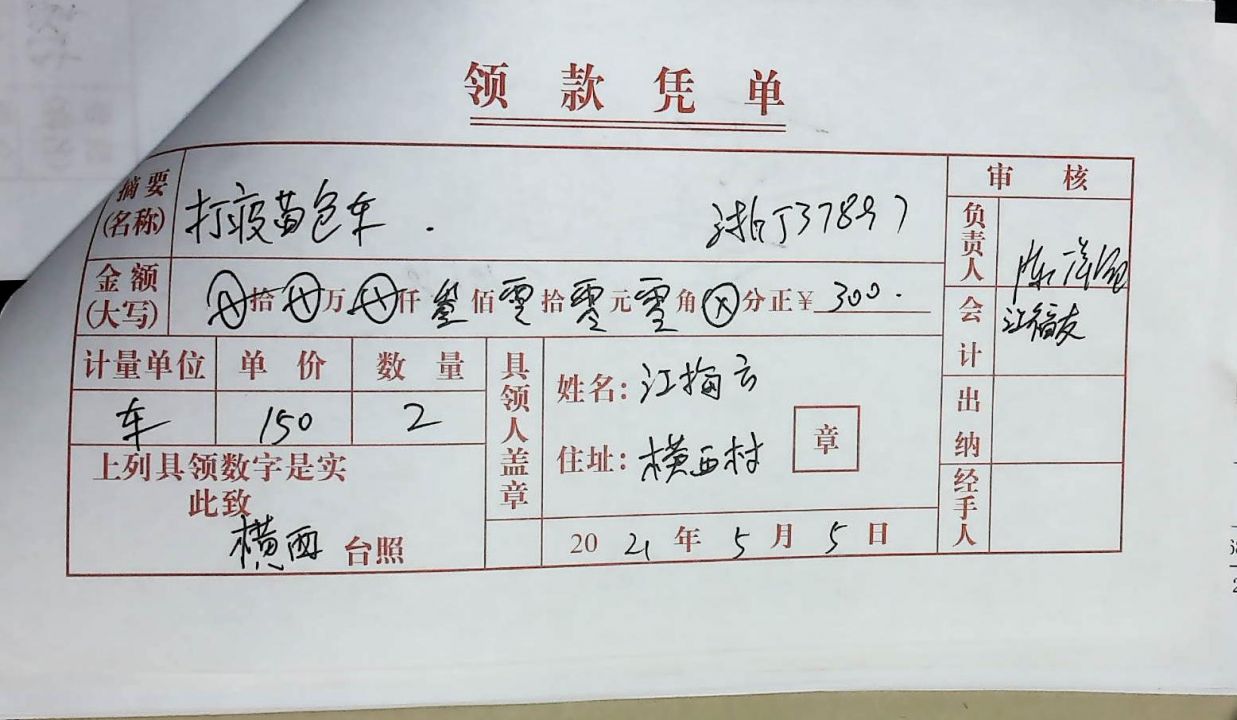 领款凭单
摘要(名称) 打疫苗包车. 浙J37897
金额(大写) ⊗拾⊗万⊗仟叁佰零拾零元零角⊗分正¥300.
计量单位 单价 数量
车 150 2
上列具领数字是实
此致
横西 台照
具领人盖章
姓名:江梅云
住址:横西村
章
2021年5月5日
审核
负责人
会计 江福友
出纳
经手人